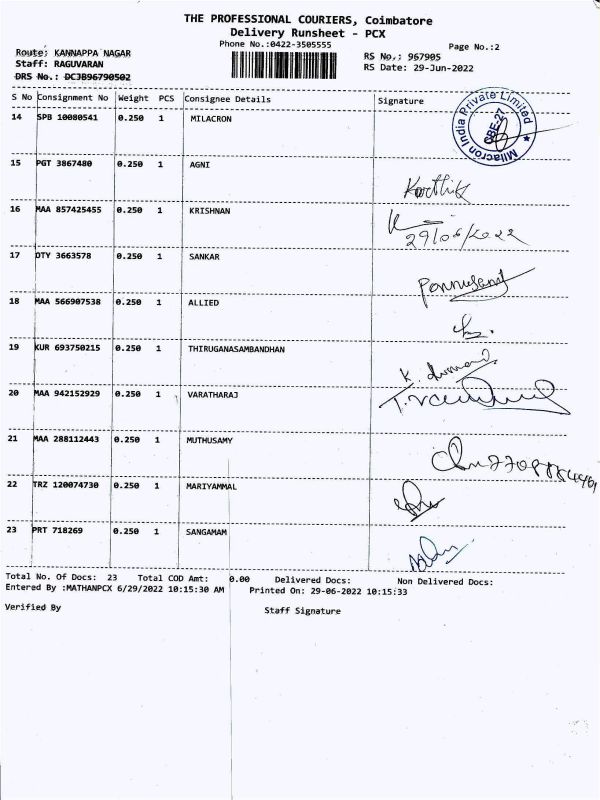 THE PROFESSIONAL COURIERS, Coimbatore
Delivery Runsheet - PCX
Phone No.:0422-3505555
Page No.:2
Route: KANNAPPA NAGAR
Staff: RAGUVARAN
DRS No.: DCJB96790502
RS No.: 967905
RS Date: 29-Jun-2022
S No Consignment No Weight PCS Consignee Details Signature
14 SPB 10080541 0.250 1 MILACRON
Milacron India Private Limited
CBE-27
15 PGT 3867480 0.250 1 AGNI
Karthik
16 MAA 857425455 0.250 1 KRISHNAN
29/06/2022
17 DTY 3663578 0.250 1 SANKAR
Ponnusamy
18 MAA 566907538 0.250 1 ALLIED
19 KUR 693750215 0.250 1 THIRUGANASAMBANDHAN
20 MAA 942152929 0.250 1 VARATHARAJ
21 MAA 288112443 0.250 1 MUTHUSAMY
22 TRZ 120074730 0.250 1 MARIYAMMAL
23 PRT 718269 0.250 1 SANGAMAM
Total No. Of Docs: 23 Total COD Amt: 0.00 Delivered Docs: Non Delivered Docs:
Entered By :MATHANPCX 6/29/2022 10:15:30 AM Printed On: 29-06-2022 10:15:33
Verified By Staff Signature